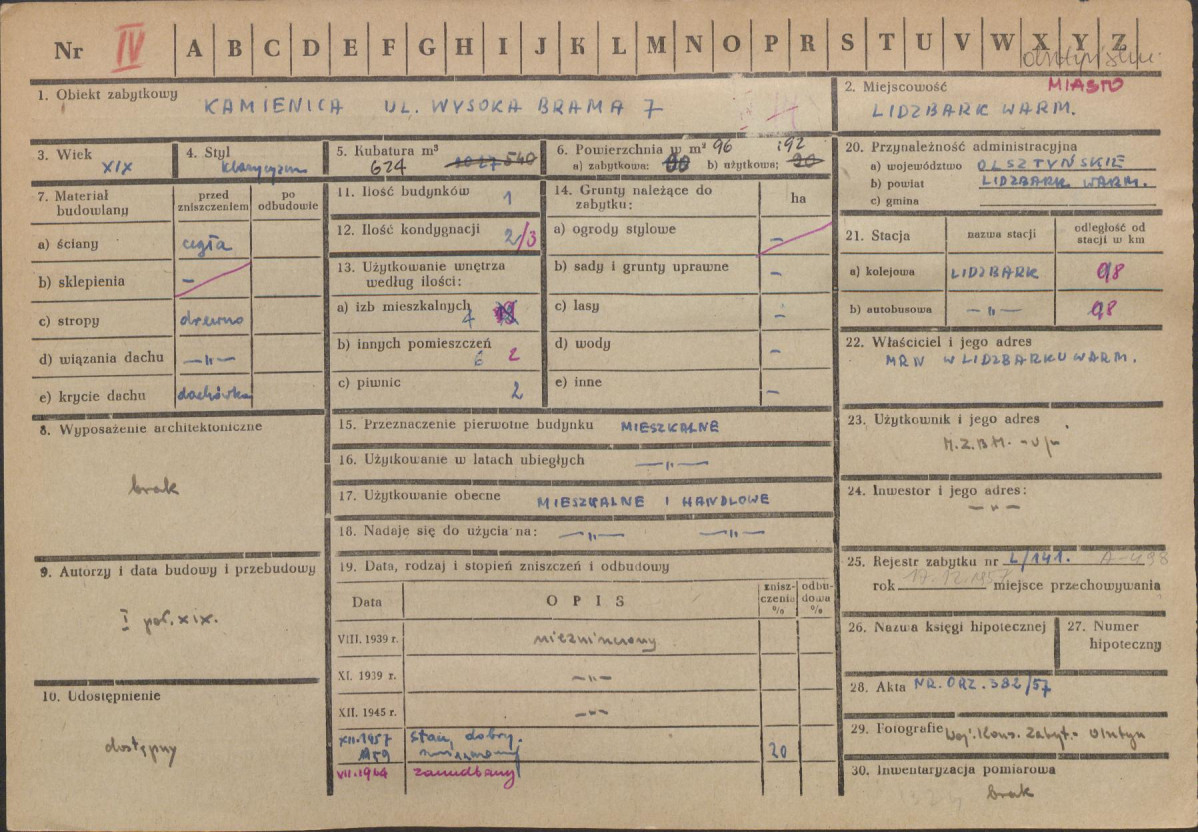 Nr IV A B C D E F G H I J K L M N O P R S T U V W X Y Z
1. Obiekt zabytkowy
KAMIENICA UL. WYSOKA BRAMA 7
2. Miejscowość MIASTO
LIDZBARK WARM.
3. Wiek
XIX
4. Styl
klasycyzm
5. Kubatura m³
624 540
6. Powierzchnia w m² 96 192
a) zabytkowa: 90 b) użytkowa: 90
20. Przynależność administracyjna
a) województwo OLSZTYŃSKIE
b) powiat LIDZBARK WARM.
c) gmina
7. Materiał budowlany
przed zniszczeniem
po odbudowie
a) ściany cegła
b) sklepienia –
c) stropy drewno
d) wiązania dachu –"–
e) krycie dachu dachówka
11. Ilość budynków 1
12. Ilość kondygnacji 2/3
13. Użytkowanie wnętrza
według ilości:
a) izb mieszkalnych 4
b) innych pomieszczeń 6 2
c) piwnic 2
14. Grunty należące do
zabytku: ha
a) ogrody stylowe –
b) sady i grunty uprawne –
c) lasy –
d) wody –
e) inne –
21. Stacja
nazwa stacji
odległość od
stacji w km
a) kolejowa LIDZBARK 0,8
b) autobusowa –"– 0,8
22. Właściciel i jego adres
MRN W LIDZBARKU WARM.
8. Wyposażenie architektoniczne
brak
15. Przeznaczenie pierwotne budynku MIESZKALNE
16. Użytkowanie w latach ubiegłych –"–
17. Użytkowanie obecne MIESZKALNE I HANDLOWE
18. Nadaje się do użycia na: –"– –"–
23. Użytkownik i jego adres
M.Z.B.M.
24. Inwestor i jego adres:
–"–
9. Autorzy i data budowy i przebudowy
I poł. XIX.
19. Data, rodzaj i stopień zniszczeń i odbudowy
Data
OPIS
znisz-
czenia
%
odbu-
dowa
%
VIII. 1939 r. niezniszczony
XI. 1939 r. –"–
XII. 1945 r. –"–
XII.1957 stan dobry.
20
VII.1964 zaniedbany
25. Rejestr zabytku nr L/141. A-498
rok 17.12.1957 miejsce przechowywania
26. Nazwa księgi hipotecznej
27. Numer
hipoteczny
10. Udostępnienie
dostępny
28. Akta NR. ORZ. 382/57
29. Fotografie Woj. Kons. Zabyt. Olsztyn
30. Inwentaryzacja pomiarowa
brak